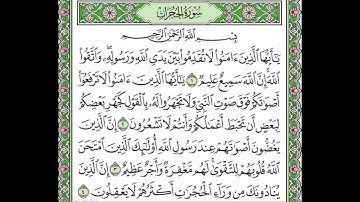 سورة الحجرات
بسم الله الرحمن الرحيم
يَٰٓأَيُّهَا ٱلَّذِينَ ءَامَنُوا۟ لَا تُقَدِّمُوا۟ بَيْنَ يَدَىِ ٱللَّهِ وَرَسُولِهِۦ ۖ وَٱتَّقُوا۟
ٱللَّهَ ۚ إِنَّ ٱللَّهَ سَمِيعٌ عَلِيمٌ ١ يَٰٓأَيُّهَا ٱلَّذِينَ ءَامَنُوا۟ لَا تَرْفَعُوٓا۟
أَصْوَٰتَكُمْ فَوْقَ صَوْتِ ٱلنَّبِىِّ وَلَا تَجْهَرُوا۟ لَهُۥ بِٱلْقَوْلِ كَجَهْرِ بَعْضِكُمْ
لِبَعْضٍ أَن تَحْبَطَ أَعْمَٰلُكُمْ وَأَنتُمْ لَا تَشْعُرُونَ ٢ إِنَّ ٱلَّذِينَ
يَغُضُّونَ أَصْوَٰتَهُمْ عِندَ رَسُولِ ٱللَّهِ أُو۟لَٰٓئِكَ ٱلَّذِينَ ٱمْتَحَنَ
ٱللَّهُ قُلُوبَهُمْ لِلتَّقْوَىٰ ۚ لَهُم مَّغْفِرَةٌ وَأَجْرٌ عَظِيمٌ ٣ إِنَّ ٱلَّذِينَ
يُنَادُونَكَ مِن وَرَآءِ ٱلْحُجُرَٰتِ أَكْثَرُهُمْ لَا يَعْقِلُونَ ٤